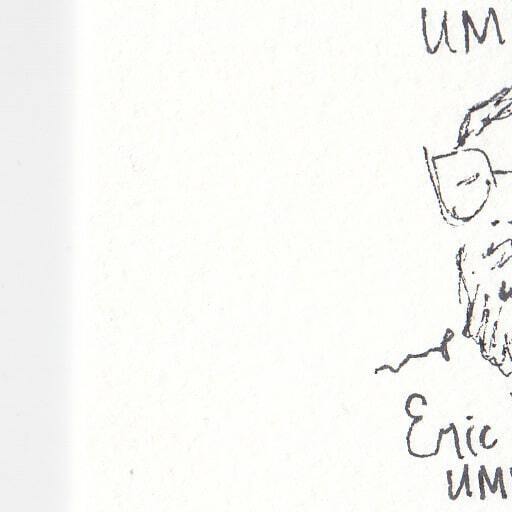 UM
Eric
UM